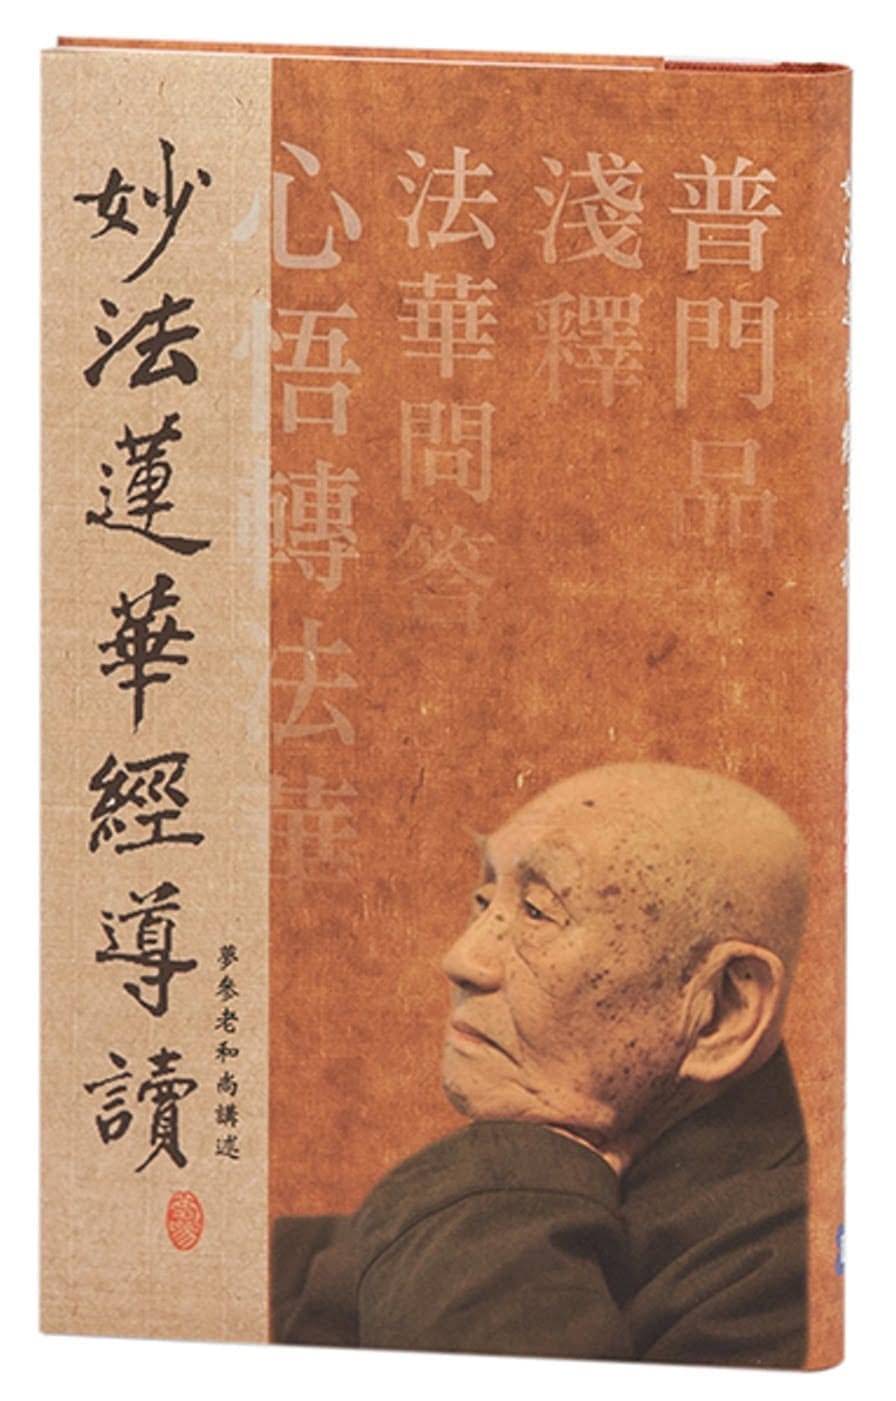 普門品
淺釋
法華問答
心悟轉法華
妙法蓮華經導讀
夢參老和尚講述
夢參